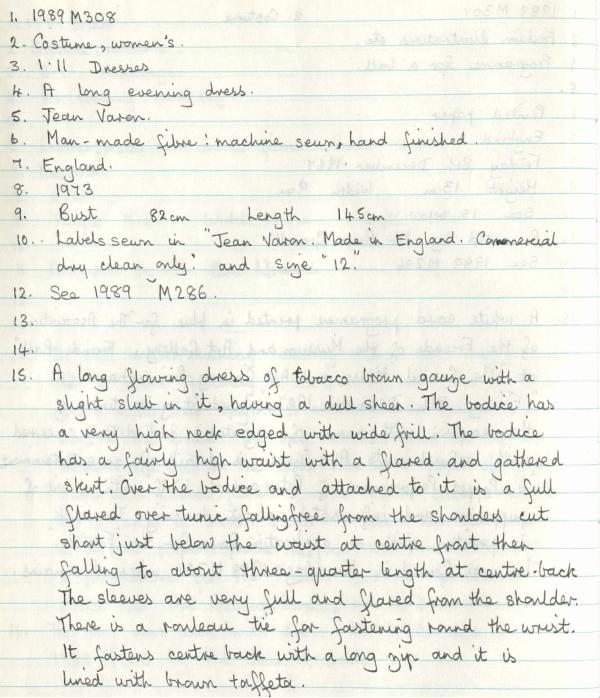 1. 1989 M308
2. Costume, women's.
3. 1.11 Dresses
4. A long evening dress.
5. Jean Varon.
6. Man-made fibre: machine sewn, hand finished.
7. England.
8. 1973
9. Bust 82cm Length 145cm
10.. Labels sewn in "Jean Varon. Made in England. Commercial
dry clean only." and size "12."
12. See 1989 M286.
13.
14.
15. A long flowing dress of tobacco brown gauze with a
slight slub in it, having a dull sheen. The bodice has
a very high neck edged with wide frill. The bodice
has a fairly high waist with a flared and gathered
skirt. Over the bodice and attached to it is a full
flared over tunic falling free from the shoulders, cut
short just below the waist at centre front then
falling to about three-quarter length at centre-back
The sleeves are very full and flared from the shoulder.
There is a rouleau tie for fastening round the wrist.
It fastens centre back with a long zip and it is
lined with brown taffeta.